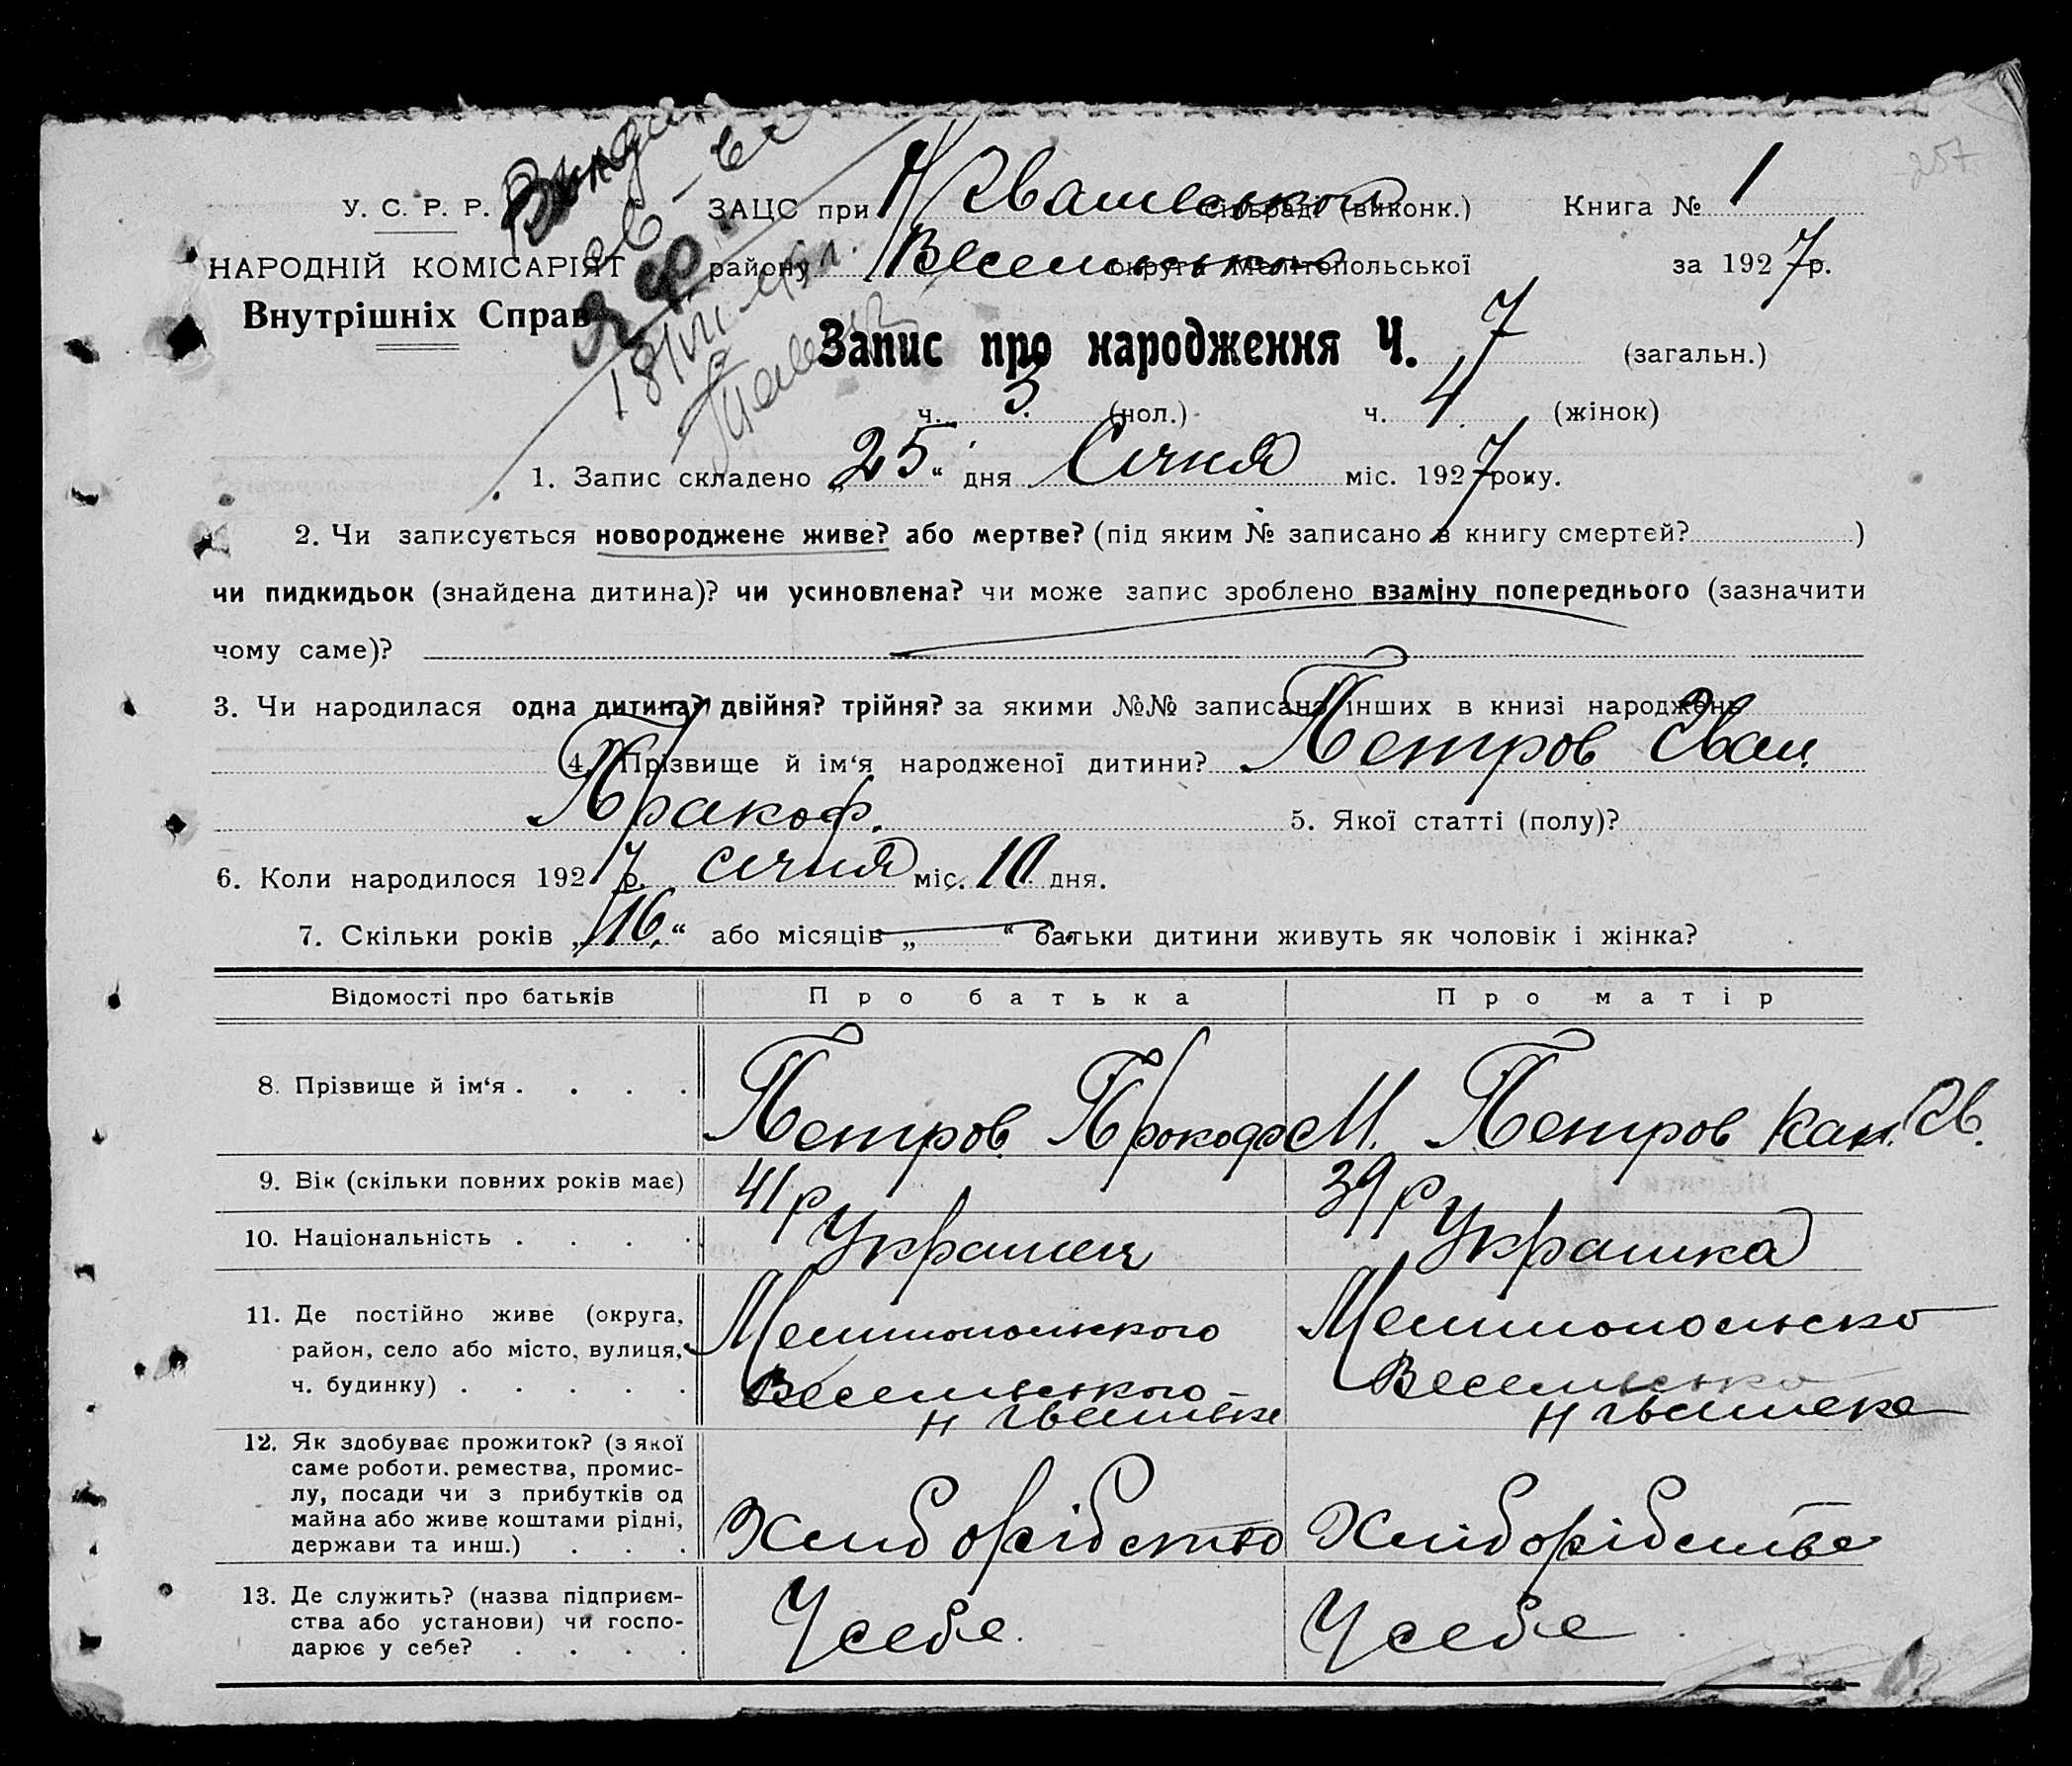 257
У. С. Р. Р.
НАРОДНІЙ КОМІСАРІЯТ
Внутрішніх Справ
18/VII
ЗАЦС при Н Ивашевськой сільраді (виконк.) Книга № 1
району Весельського округи Мелітопольської за 1927 р.
Запис про народження Ч. 7 (загальн.)
ч. 3 (чол.) ч. 4 (жінок)
1. Запис складено „25“ дня Січня міс. 1927 року.
2. Чи записується новороджене живе? або мертве? (під яким № записано в книгу смертей? )
чи пидкидьок (знайдена дитина)? чи усиновлена? чи може запис зроблено взаміну попереднього (зазначити
чому саме)?
3. Чи народилася одна дитина? двійня? трійня? за якими №№ записано інших в книзі народжень
4. Прізвище й ім‘я народженої дитини? Петров Иван
Пракоф. 5. Якої статті (полу)?
6. Коли народилося 1927 р. січня міс. 10 дня.
7. Скільки років „16“ або місяців „ “ батьки дитини живуть як чоловік і жінка?
Відомості про батьків Про батька Про матір
8. Прізвище й ім‘я . . . . Петров Прокоф М. Петров Кан. Ив.
9. Вік (скільки повних років має) 41 р 39 р
10. Національність . . . . Украинец Украинка
11. Де постійно живе (округа, Мелитопольского Мелитопольско
район, село або місто, вулиця,
ч. будинку) . . . . . Весельського Весельсько
Н Ивашевке Н Ивашеке
12. Як здобуває прожиток? (з якої
саме роботи, ремества, промис-
лу, посади чи з прибутків од
майна або живе коштами рідні,
держави та инш.) . . . Хлиборібство Хліборібство
13. Де служить? (назва підприєм-
ства або установи) чи госпо- У себе. У себе
дарює у себе? . . . .